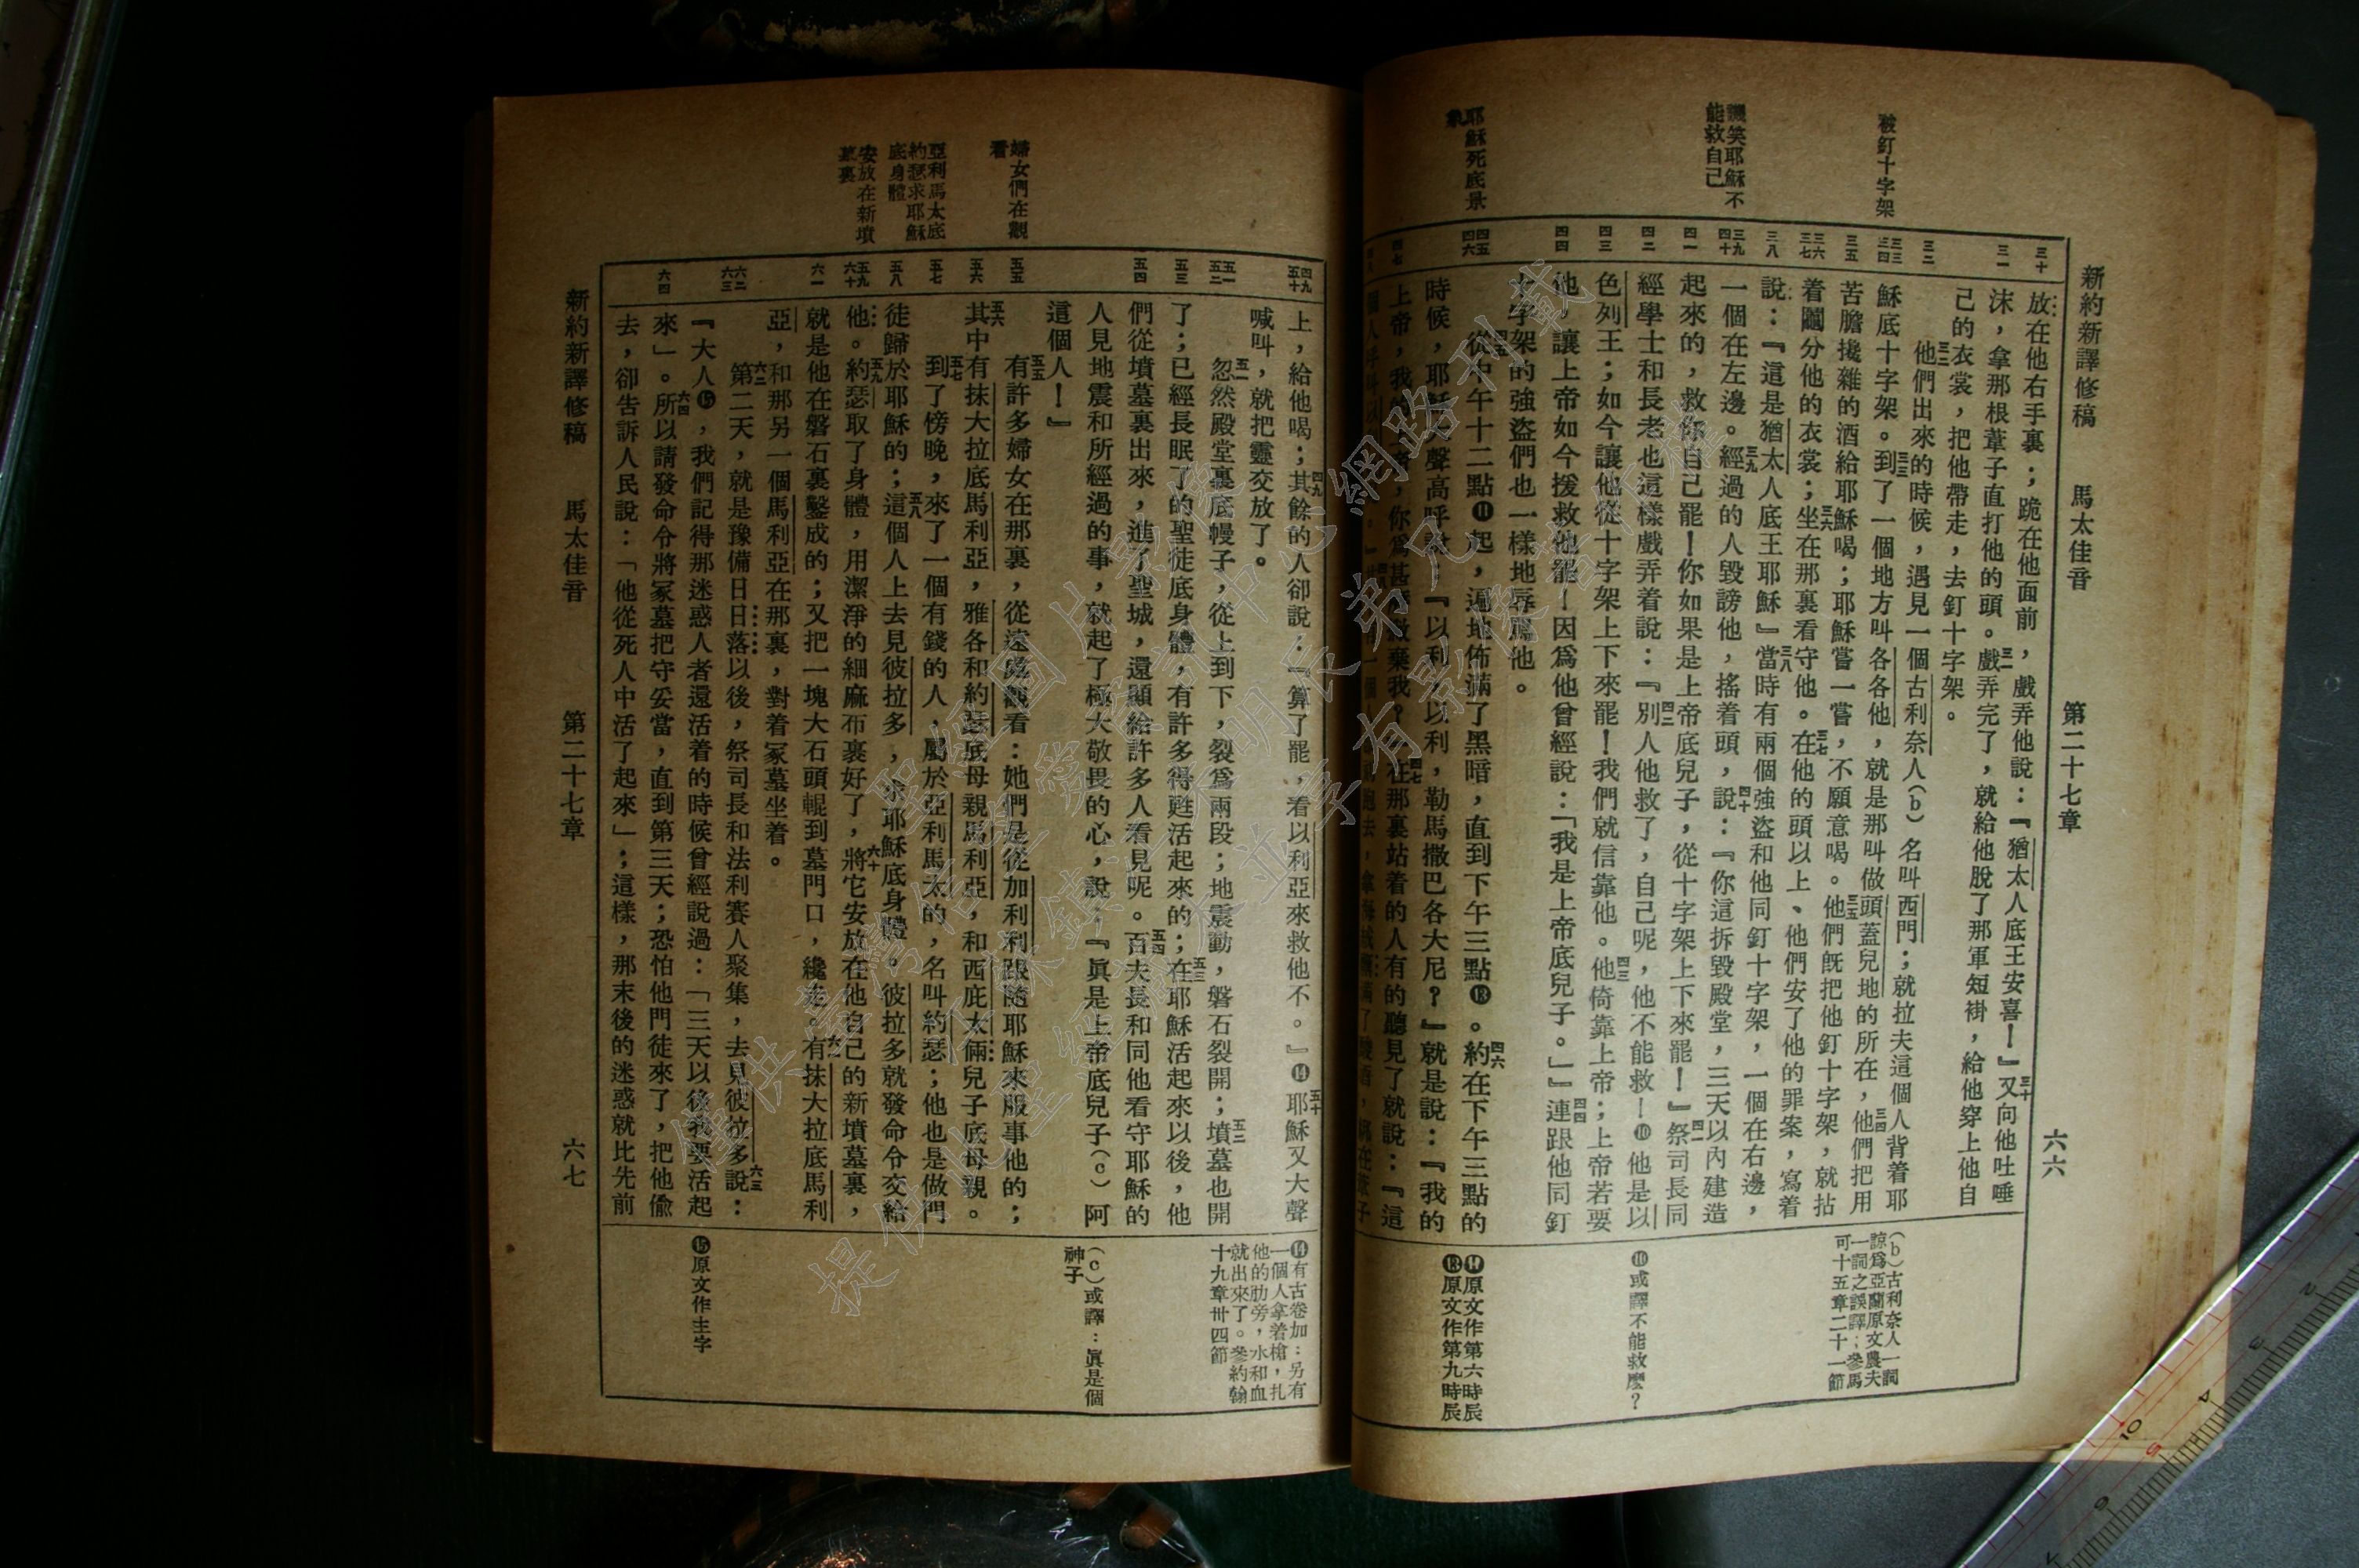 新約新譯修稿 馬太佳音 第二十七章 六六
被釘十字架
譏笑耶穌不
能救自己
耶穌死底景
象
三十
三一
三二
三三
三四
三五
三六
三七
三八
三九
四十
四一
四二
四三
四四
四五
四六
四七
放在他右手裏;跪在他面前,戲弄他說:『猶太人底王安喜!』三十又向他吐唾
沫,拿那根葦子直打他的頭。三一戲弄完了,就給他脫了那軍短褂,給他穿上他自
己的衣裳,把他帶走,去釘十字架。
三二他們出來的時候,遇見一個古利奈人(b)名叫西門;就拉夫這個人背着耶
穌底十字架。三三到了一個地方叫各各他,就是那叫做頭蓋兒地的所在,三四他們把用
苦膽攙雜的酒給耶穌喝;耶穌嘗一嘗,不願意喝。三五他們旣把他釘十字架,就拈
着鬮分他的衣裳;三六坐在那裏看守他。三七在他的頭以上、他們安了他的罪案,寫着
說:『這是猶太人底王耶穌』三八當時有兩個強盜和他同釘十字架,一個在右邊,
一個在左邊。三九經過的人毀謗他,搖着頭,四十說:『你這拆毀殿堂,三天以內建造
起來的,救你自己罷!你如果是上帝底兒子,從十字架上下來罷!』四一祭司長同
經學士和長老也這樣戲弄着說:四二『別人他救了,自己呢,他不能救!⓾他是以
色列王;如今讓他從十字架上下來罷!我們就信靠他。四三他倚靠上帝;上帝若要
他,讓上帝如今援救他罷!因爲他曾經說:「我是上帝底兒子。」』四四連跟他同釘
十字架的強盜們也一樣地辱罵他。
四五從中午十二點⓫起,遍地佈滿了黑暗,直到下午三點⓭。四六約在下午三點的
時候,耶穌大聲高呼說:『以利,以利,勒馬撒巴各大尼?』就是說:『我的
上帝,我的上帝,你爲甚麼撇棄我?』四七在那裏站着的人有的聽見了就說:『這
(b)古利奈人一詞
諒爲亞蘭原文農夫
一詞之誤譯;參馬
可十五章二十一節
⓾或譯不能救麼?
原文作第六時辰
⓭原文作第九時辰
婦女們在觀
看
亞利馬太底
約瑟求耶穌
底身體
安放在新墳
墓裏
四九
五十
五一
五二
五三
五四
五五
五六
五七
五八
五九
六十
六一
六二
六三
六四
上,給他喝;四九其餘的人卻說:『算了罷,看以利亞來救他不。』⓮五十耶穌又大聲
喊叫,就把靈交放了。
五一忽然殿堂裏底幔子,從上到下,裂爲兩段;地震動,磐石裂開;五二墳墓也開
了;已經長眠了的聖徒底身體,有許多得甦活起來的;五三在耶穌活起來以後,他
們從墳墓裏出來,進了聖城,還顯給許多人看見呢。五四百夫長和同他看守耶穌的
人見地震和所經過的事,就起了極大敬畏的心,說:『眞是上帝底兒子(c)阿
這個人!』
五五有許多婦女在那裏,從遠處觀看:她們是從加利利跟隨耶穌來服事他的;
五六其中有抹大拉底馬利亞,雅各和約瑟底母親馬利亞,和西庇太倆兒子底母親。
五七到了傍晚,來了一個有錢的人,屬於亞利馬太的,名叫約瑟;他也是做門
徒歸於耶穌的;五八這個人上去見彼拉多,求耶穌底身體。彼拉多就發命令交給
他。五九約瑟取了身體,用潔淨的細麻布裹好了,六十將它安放在他自己的新墳墓裏,
就是他在磐石裏鑿成的;又把一塊大石頭輥到墓門口,纔走。六一有抹大拉底馬利
亞,和那另一個馬利亞在那裏,對着冢墓坐着。
六二第二天,就是豫備日日落以後,祭司長和法利賽人聚集,去見彼拉多說:六三
『大人⓯,我們記得那迷惑人者還活着的時候曾經說過:「三天以後我要活起
來」。六四所以請發命令將冢墓把守妥當,直到第三天;恐怕他門徒來了,把他偷
去,卻告訴人民說:「他從死人中活了起來」;這樣,那末後的迷惑就比先前
⓮有古卷加:另有
一個人拿着槍,扎
他的肋旁,水和血
就出來了。參約翰
十九章卅四節
(c)或譯:眞是個
神子
⓯原文作主字
新約新譯修稿 馬太佳音 第二十七章 六七